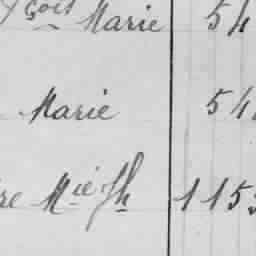 çois Marie 54
Marie 54
re Mie Jh 1153